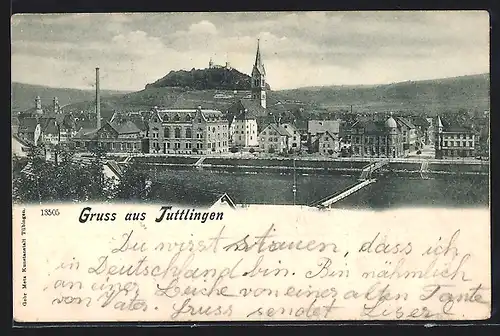 13505
Gruss aus Tuttlingen
Gebr Metz Kunstanstalt Tübingen.
Du wirst staunen, dass ich
in Deutschland bin. Bin nämlich
an einer Leiche von einer alten Tante
von Vater. Gruss sendet Liserl